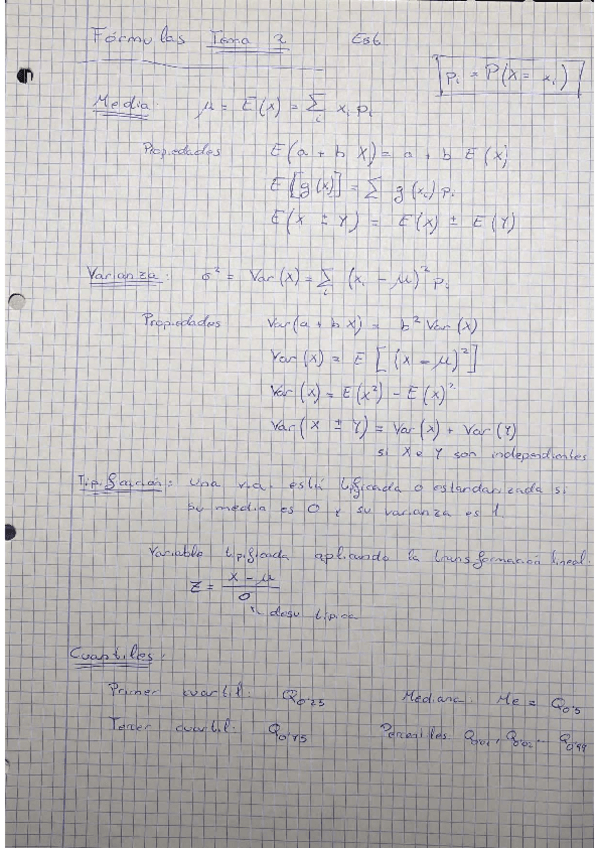 Fórmulas Tema 2 Est.
p_i = P(X = x_i)
Media μ = E(x) = Σ_i x_i p_i
Propiedades E(a + b X) = a + b E(X)
E[g(x)] = Σ g(x_i) p_i
E(X ± Y) = E(X) ± E(Y)
Varianza: σ² = Var(X) = Σ_i (x_i - μ)² p_i
Propiedades Var(a + b X) = b² Var(X)
Var(X) = E[(X - μ)²]
Var(X) = E(X²) - E(X)²
Var(X ± Y) = Var(X) + Var(Y)
si X e Y son independientes
Tipificación: una v.a. está tipificada o estandarizada si
su media es 0 y su varianza es 1.
Variable tipificada aplicando la transformación lineal:
Z = (X - μ) / σ
desv típica
Cuantiles:
Primer cuartil: Q0'25 Mediana: Me = Q0'5
Tercer cuartil: Q0'75 Percentiles Q0'01, Q0'02 ... Q0'99